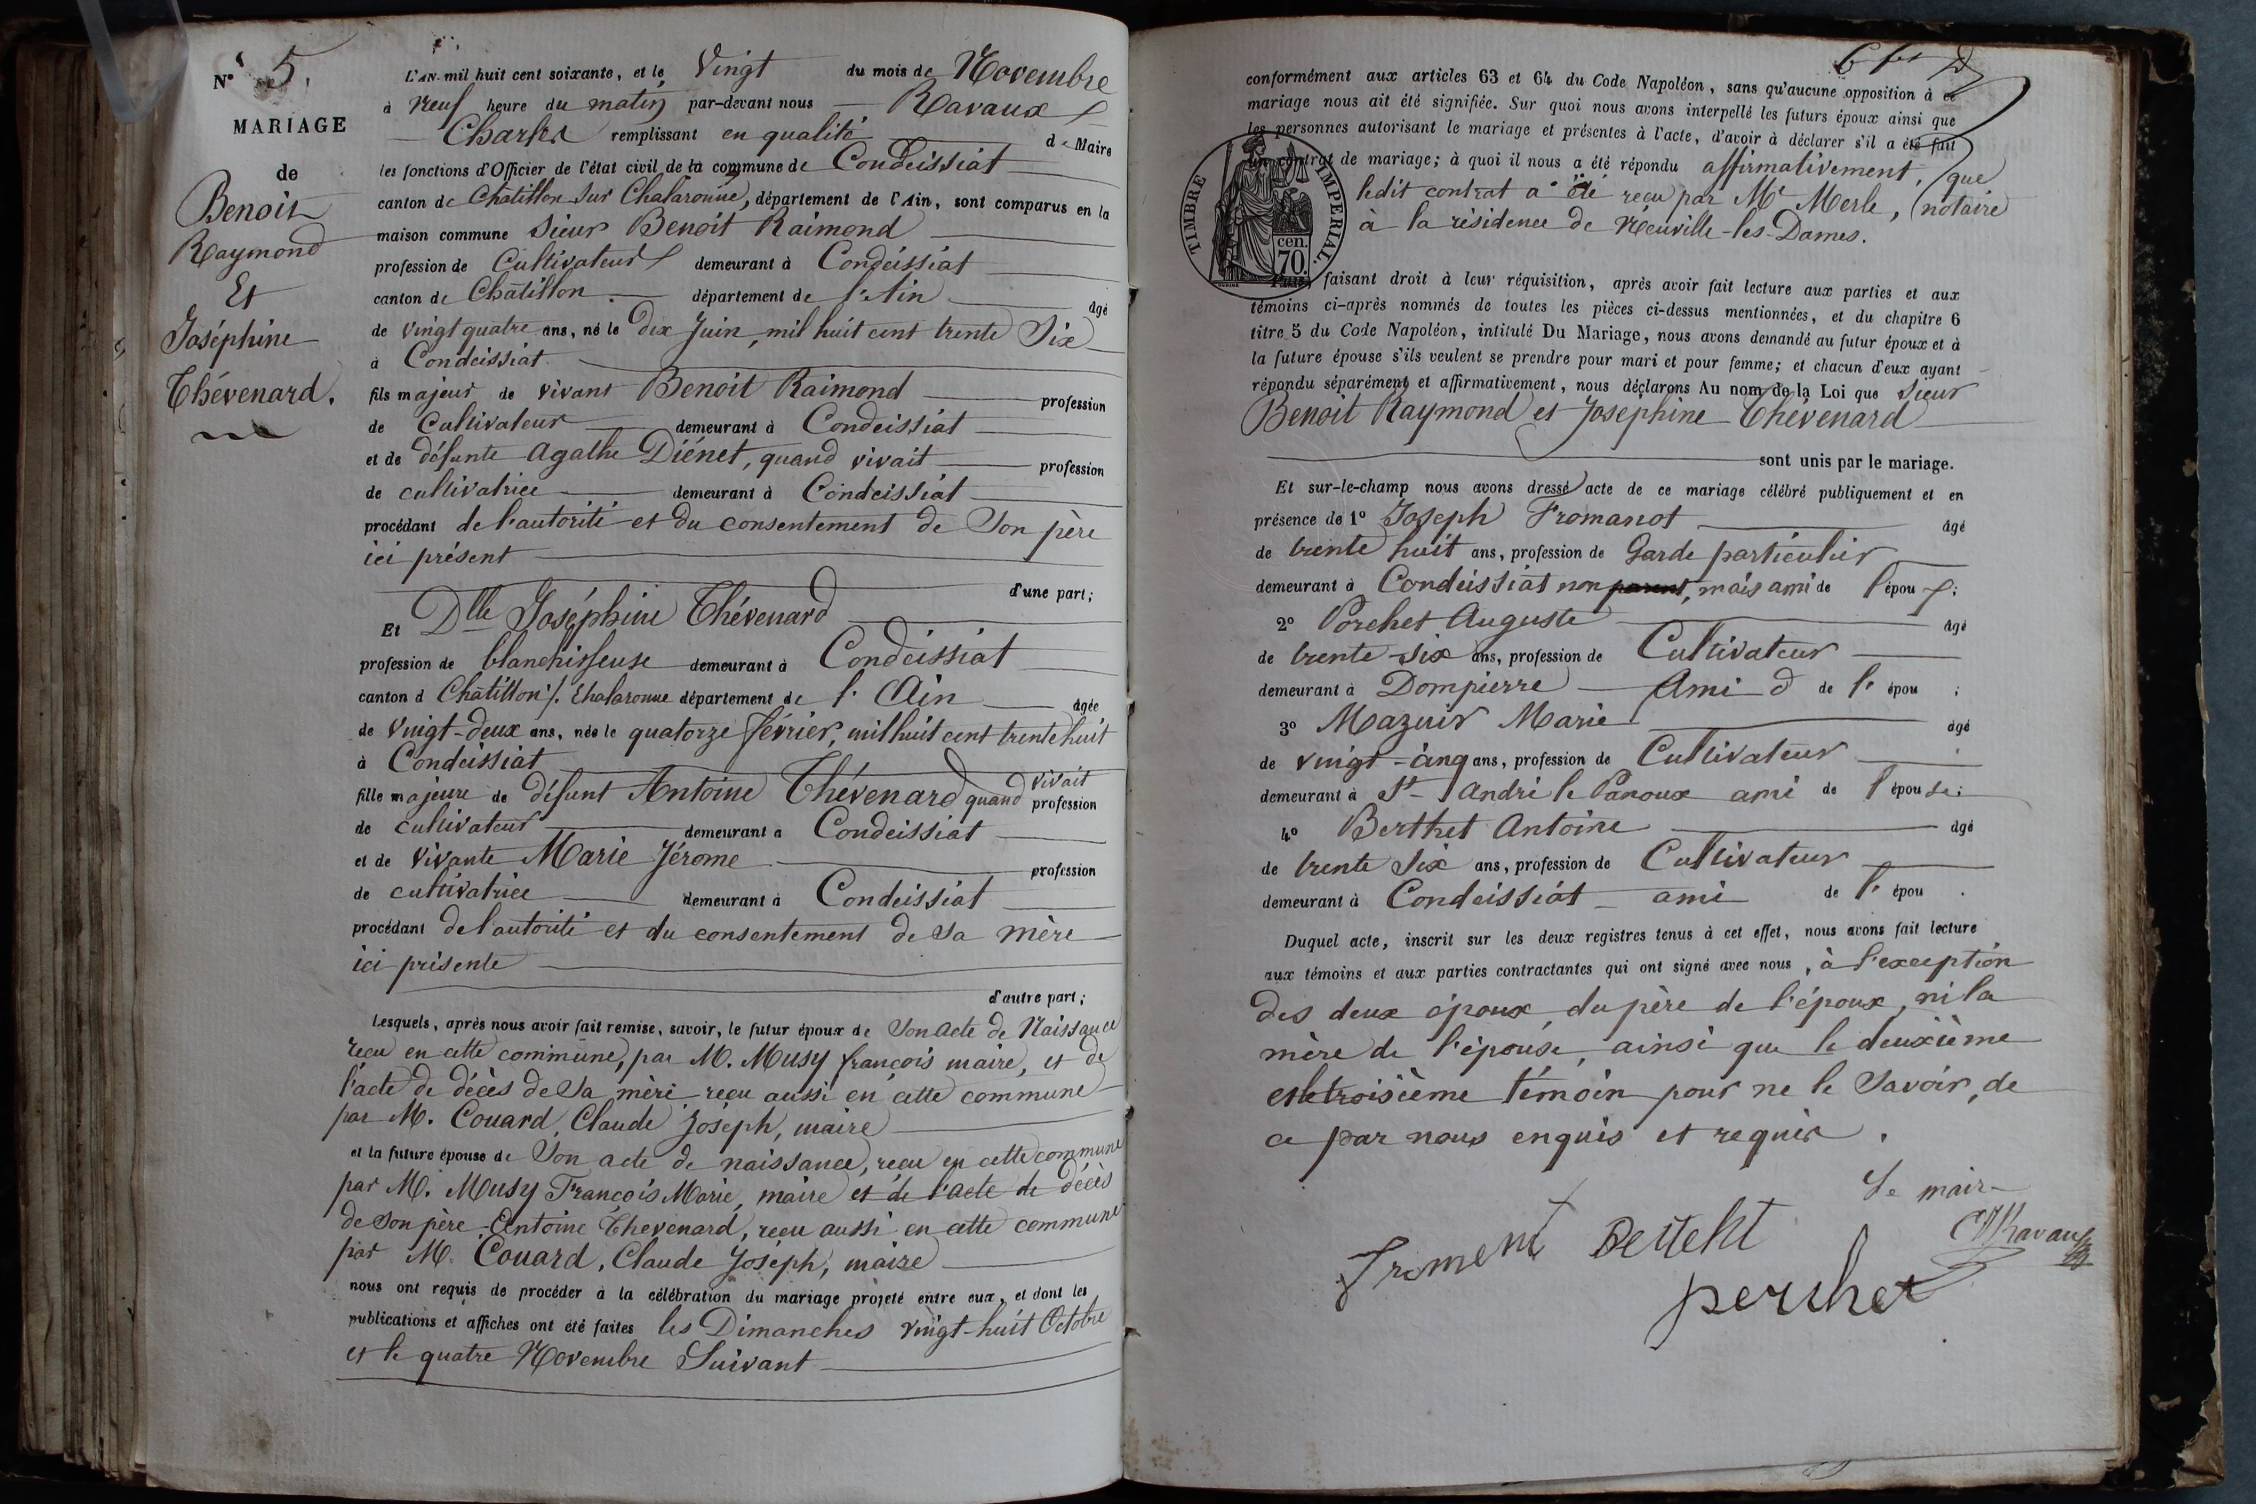 N° 5.
MARIAGE
de
Benoit
Raymond
Et
Joséphine
Thévenard.
L'AN mil huit cent soixante, et le Vingt du mois de Novembre
à Neuf heure du matin par-devant nous Ravaux
Charles remplissant en qualité de Maire
les fonctions d'Officier de l'état civil de la commune de Condeissiat
canton de Châtillon sur Chalaronne, département de l'Ain, sont comparus en la
maison commune Sieur Benoit Raimond
profession de Cultivateur demeurant à Condeissiat
canton de Châtillon département de l'Ain âgé
de vingt quatre ans, né le dix Juin, mil huit cent trente Six
à Condeissiat
fils majeur de vivant Benoit Raimond profession
de Cultivateur demeurant à Condeissiat
et de défunte Agathe Diénet, quand vivait profession
de cultivatrice demeurant à Condeissiat
procédant de l'autorité et du consentement de Son père
ici présent
d'une part;
Et Dlle Joséphine Thévenard
profession de blanchisseuse demeurant à Condeissiat
canton d Châtillon s/. Chalaronne département de l'Ain âgée
de vingt-deux ans, née le quatorze février, mil huit cent trente huit
à Condeissiat
fille majeure de défunt Antoine Thévenard quand vivait profession
de cultivateur demeurant à Condeissiat
et de vivante Marie Jérome profession
de cultivatrice demeurant à Condeissiat
procédant de l'autorité et du consentement de sa mère
ici présente
d'autre part;
Lesquels, après nous avoir fait remise, savoir, le futur époux de Son acte de Naissance
reçu en cette commune, par M. Musy françois maire, et de
l'acte de décès de Sa mère reçu aussi en cette commune
par M. Couard, Claude Joséph, maire
et la future épouse de Son acte de naissance, reçu en cette commune
par M. Musy François Marie, maire et de l'acte de décès
de Son père Antoine Thevenard, reçu aussi en cette commune
par M. Couard, Claude Joséph, maire
nous ont requis de procéder à la célébration du mariage projeté entre eux, et dont les
publications et affiches ont été faites les Dimanches vingt-huit Octobre
et le quatre Novembre Suivant
conformément aux articles 63 et 64 du Code Napoléon, sans qu'aucune opposition à ce
mariage nous ait été signifiée. Sur quoi nous avons interpellé les futurs époux ainsi que
les personnes autorisant le mariage et présentes à l'acte, d'avoir à déclarer s'il a été fait
un contrat de mariage; à quoi il nous a été répondu affirmativement, que
ledit contrat a été reçu par Me Merle, notaire
à la résidence de Neuville-les-Dames.
TIMBRE IMPERIAL.
cen.
70.
Puis, faisant droit à leur réquisition, après avoir fait lecture aux parties et aux
témoins ci-après nommés de toutes les pièces ci-dessus mentionnées, et du chapitre 6
titre 5 du Code Napoléon, intitulé Du Mariage, nous avons demandé au futur époux et à
la future épouse s'ils veulent se prendre pour mari et pour femme; et chacun d'eux ayant
répondu séparément et affirmativement, nous déclarons Au nom de la Loi que Sieur
Benoit Raymond et Josephine Thévenard
sont unis par le mariage.
Et sur-le-champ nous avons dressé acte de ce mariage célébré publiquement et en
présence de 1° Joseph Fromanot âgé
de trente huit ans, profession de Garde particulier
demeurant à Condeissiat non parent, mais ami de l'épou;
2° Porchet Auguste âgé
de trente-six ans, profession de Cultivateur
demeurant à Dompierre Ami de l'épou;
3° Mazuir Marie âgé
de vingt-cinq ans, profession de Cultivateur
demeurant à St-André le Panoux ami de l'épouse;
4° Berthet Antoine âgé
de trente Six ans, profession de Cultivateur
demeurant à Condeissiat ami de l'épou.
Duquel acte, inscrit sur les deux registres tenus à cet effet, nous avons fait lecture
aux témoins et aux parties contractantes qui ont signé avec nous, à l'exception
des deux époux, du père de l'époux, ni la
mère de l'épouse, ainsi que le deuxième
et le troisième témoin pour ne le Savoir, de
ce par nous enquis et requis.
Le maire
Ravaux
Froment Bertelit
perchet